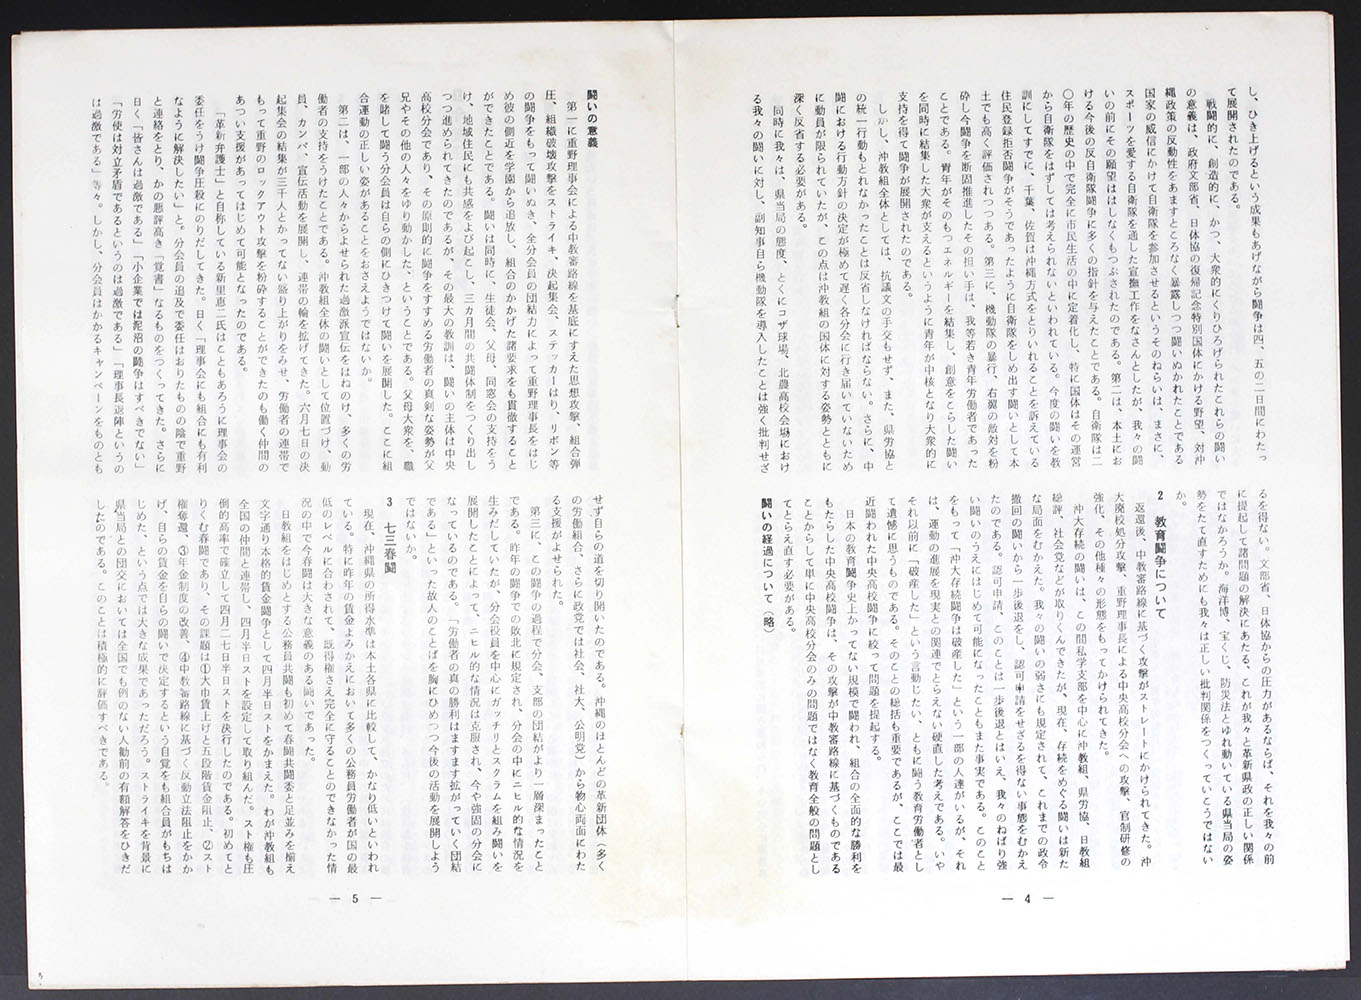 し、ひき上げるという成果もあげながら闘争は四、五の二日間にわたっ
て展開されたのである。
戦闘的に、創造的に、かつ、大衆的にくりひろげられたこれらの闘い
の意義は、政府文部省、日体協の復帰記念特別国体にかける野望、対沖
縄政策の反動性をあますところなく暴露しつつ闘いぬかれたことである
国家の威信にかけて自衛隊を参加させるというそのねらいは、まさに、
スポーツを愛する自衛隊を通した宣撫工作をなさんとしたが、我々の闘
いの前にその願望ははしなくもつぶされたのである。第二は、本土にお
ける今後の反自衛隊闘争に多くの指針を与えたことである。自衛隊は二
〇年の歴史の中で完全に市民生活の中に定着化し、特に国体はその運営
から自衛隊をはずしては考えられないといわれている。今度の闘いを教
訓にしてすでに、千葉、佐賀は沖縄方式をとりいれることを訴えている
住民登録拒否闘争がそうであったように自衛隊をしめ出す闘いとして本
土でも高く評価されつつある。第三に、機動隊の暴行、右翼の敵対を粉
砕し今闘争を断固推進したその担い手は、我等若き青年労働者であった
ことである。青年がそのもつエネルギーを結集し、創意をこらした闘い
を同時に結集した大衆が支えるというように青年が中核となり大衆的に
支持を得て闘争が展開されたのである。
しかし、沖教組全体としては、抗議文の手交もせず、また、県労協と
の統一行動もとれなかったことは反省しなければならない。さらに、中
闘における行動方針の決定が極めて遅く各分会に行き届いていないため
に動員が限られていたが、この点は沖教組の国体に対する姿勢とともに
深く反省する必要がある。
同時に我々は、県当局の態度、とくにコザ球場、北農高校会場におけ
る我々の闘いに対し、副知事自ら機動隊を導入したことは強く批判せざ
るを得ない。文部省、日体協からの圧力があるならば、それを我々の前
に提起して諸問題の解決にあたる、これが我々と革新県政の正しい関係
ではなかろうか。海洋博、宝くじ、防災法とゆれ動いている県当局の姿
勢をたて直すためにも我々は正しい批判関係をつくっていこうではない
か。
2 教育闘争について
返還後、中教審路線に基づく攻撃がストレートにかけられてきた。沖
大廃校処分攻撃、重野理事長による中央高校分会への攻撃、官制研修の
強化、その他種々の形態をもってかけられてきた。
沖大存続の闘いは、この間私学支部を中心に沖教組、県労協、日教組
総評、社会党などが取りくんできたが、現在、存続をめぐる闘いは新た
な局面をむかえた。我々の闘いの弱さにも規定されて、これまでの政令
撤回の闘いから一歩後退をし、認可申請をせざるを得ない事態をむかえ
たのである。認可申請、このことは一歩後退とはいえ、我々のねばり強
い闘いのうえにはじめて可能になったこともまた事実である。このこと
をもって「沖大存続闘争は破産した」という一部の人達がいるが、それ
は、運動の進展を現実との関連でとらえない硬直した考えである。いや
それ以前に「破産した」という言動じたい、ともに闘う教育労働者とし
て遺憾に思うものである。そのことの総括も重要であるが、ここでは最
近闘われた中央高校闘争に絞って問題を提起する。
日本の教育闘争史上かってない規模で闘われ、組合の全面的な勝利を
もたらした中央高校闘争は、その攻撃が中教審路線に基づくものである
ことからして単に中央高校分会のみの問題ではなく教育全般の問題とし
てとらえ直す必要がある。
闘いの経過について(略)
— 4 —
闘いの意義
第一に重野理事会による中教審路線を基底にすえた思想攻撃、組合弾
圧、組織破壊攻撃をストライキ、決起集会、ステッカーはり、リボン等
の闘争をもって闘いぬき、全分会員の団結力によって重野理事長をはじ
め彼の側近を学園から追放し、組合のかかげた諸要求をも貫徹すること
ができたことである。闘いは同時に、生徒会、父母、同窓会の支持をう
け、地域住民にも共感をよび起こし、三カ月間の共闘体制をつくり出し
つつ進められてきたのであるが、その最大の教訓は、闘いの主体は中央
高校分会であり、その原則的に闘争をすすめる労働者の真剣な姿勢が父
兄やその他の人々をゆり動かした、ということである。父母大衆を、職
を賭して闘う分会員は自らの側にひきつけて闘いを展開した。ここに組
合運動の正しい姿があることをおさえようではないか。
第二は、一部の人々からよせられた過激派宣伝をはねのけ、多くの労
働者の支持をうけたことである。沖教組全体の闘いとして位置づけ、動
員、カンパ、宣伝活動を展開し、連帯の輪を拡げてきた。六月七日の決
起集会の結集が三千人とかってない盛り上がりをみせ、労働者の連帯で
もって重野のロックアウト攻撃を粉砕することができたのも働く仲間の
あつい支援があってはじめて可能となったのである。
「革新弁護士」と自称している新里恵二氏はこともあろうに理事会の
委任をうけ闘争圧殺にのりだしてきた。曰く「理事会にも組合にも有利
なように解決したい」と。分会員の追及で委任はおりたものの陰で重野
と連絡をとり、かの悪評高き「覚書」なるものをつくってきた。さらに
曰く「皆さんは過激である」「小企業では泥沼の闘争はすべきでない」
「労使は対立矛盾であるというのは過激である」「理事長退陣というの
は過激である」等々。しかし、分会員はかかるキャンペーンをものとも
せず自らの道を切り開いたのである。沖縄のほとんどの革新団体(多く
の労働組合、さらに政党では社会、社大、公明党)から物心両面にわた
る支援がよせられた。
第三に、この闘争の過程で分会、支部の団結がより一層深まったこと
である。昨年の闘争での敗北に規定され、分会の中にニヒル的な情況を
生みだしていたが、分会役員を中心にガッチリとスクラムを組み闘いを
展開したことによって、ニヒル的な情況は克服され、今や強固の分会に
なっているのである。「労働者の真の勝利はますます拡がっていく団結
である」といった故人のことばを胸にひめつつ今後の活動を展開しよう
ではないか。
3 七三春闘
現在、沖縄県の所得水準は本土各県に比較して、かなり低いといわれ
ている。特に昨年の賃金よみかえにおいて多くの公務員労働者が国の最
低のレベルに合わされて、既得権さえ完全に守ることのできなかった情
況の中で今春闘は大きな意義のある闘いであった。
日教組をはじめとする公務員共闘も初めて春闘共闘委と足並みを揃え
文字通り本格的賃金闘争として四月半日ストをかまえた。わが沖教組も
全国の仲間と連帯し、四月半日ストを設定して取り組んだ。スト権も圧
倒的高率で確立して四月二七日半日ストを決行したのである。初めてと
りくむ春闘であり、その課題は①大巾賃上げと五段階賃金阻止、②スト
権奪還、③年金制度の改善、④中教審路線に基づく反動立法阻止をかか
げ、自らの賃金を自らの闘いで決定するという自覚をも組合員がもちは
じめた、という点では大きな成果であっただろう。ストライキを背景に
県当局との団交においては全国でも例のない人勧前の有額解答をひきだ
したのである。このことは積極的に評価すべきである。
— 5 —